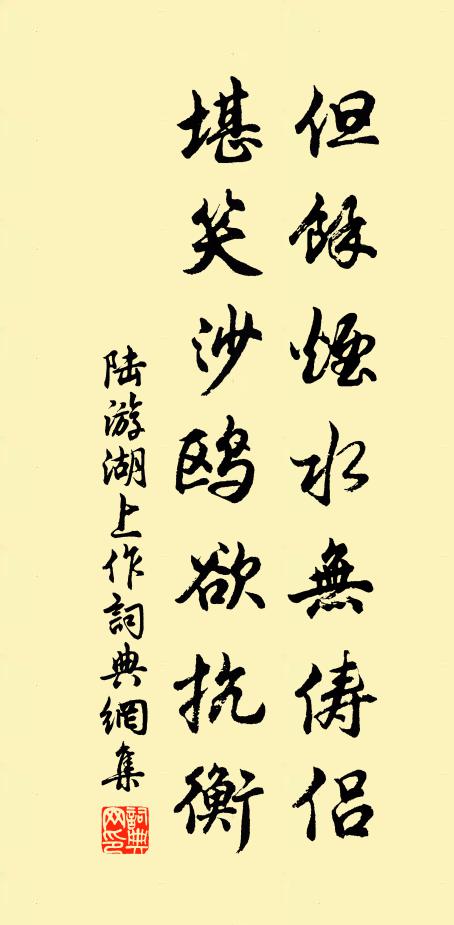 但餘煙水無儔侶
堪笑沙鷗欲抗衡
陸游湖上作詞典網集
詞典網印